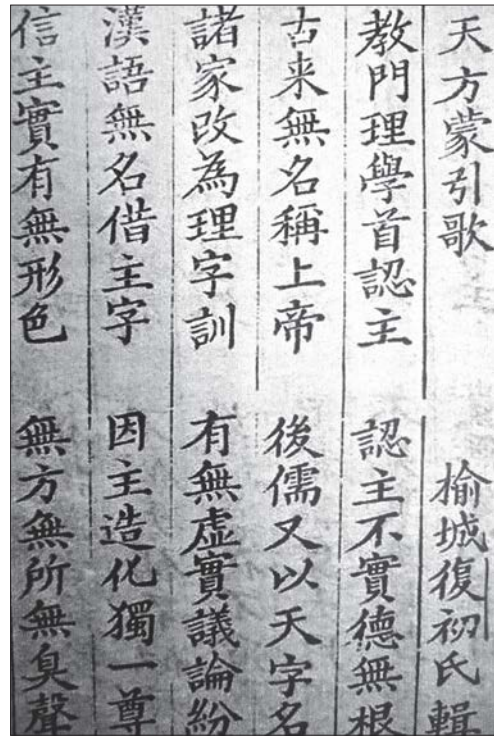 天方蒙引歌 榆城復初氏輯
教門理學首認主 認主不實德無根
古来無名稱上帝 後儒又以天字名
諸家改為理字訓 有無虛實議論紛
漢語無名借主字 因主造化獨一尊
信主實有無形色 無方無所無臭聲